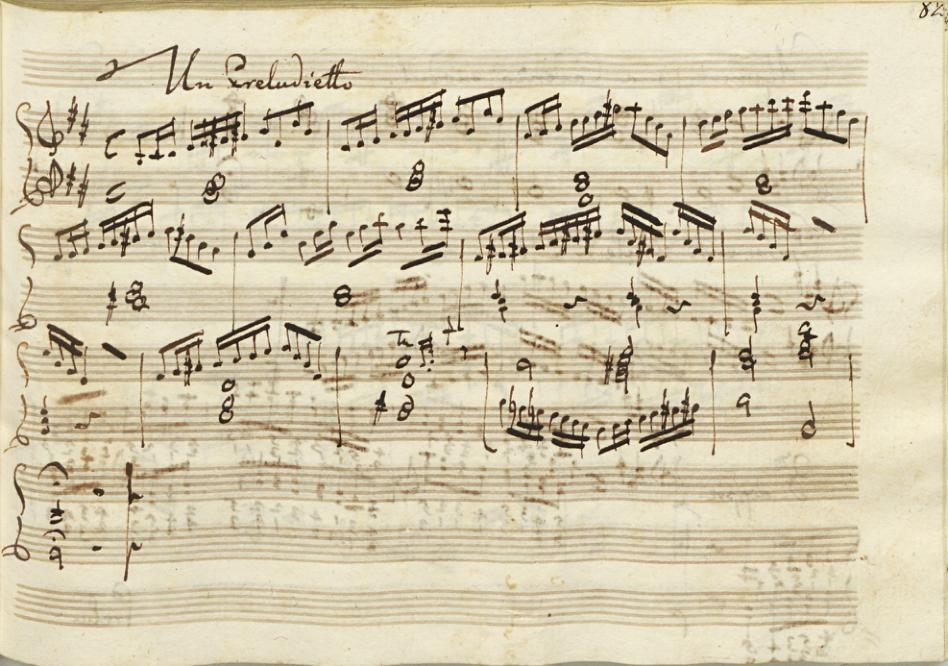 82
Un Preludietto
Tr